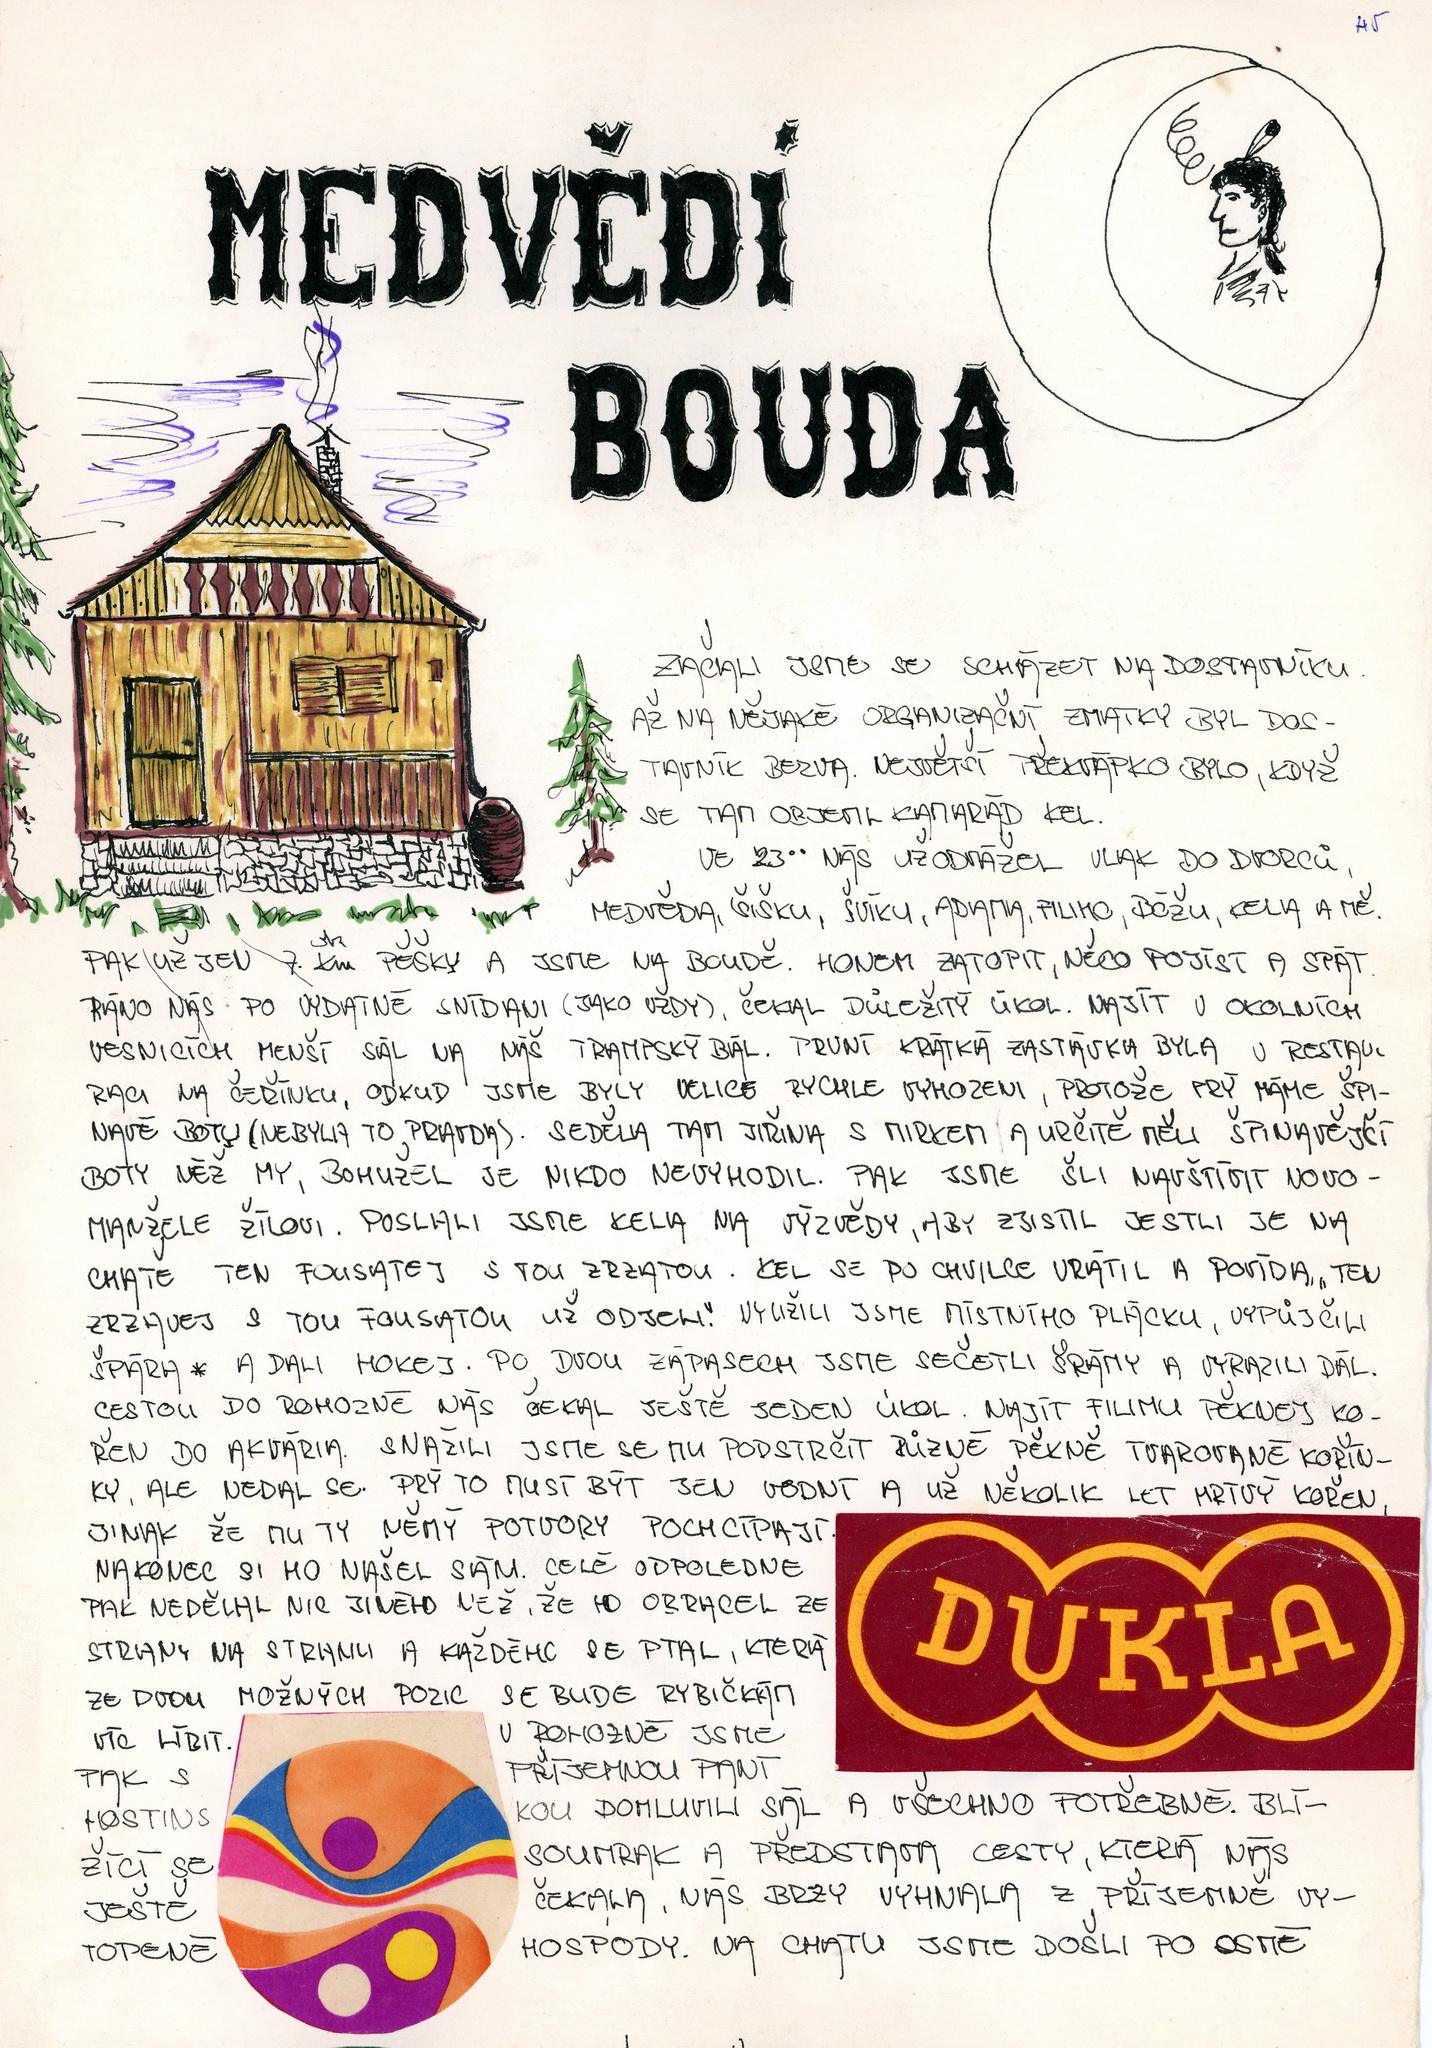 45
MEDVĚDÍ
BOUDA
ZAČALI JSME SE SCHÁZET NA DOSTAVNÍKU.
AŽ NA NĚJAKÉ ORGANIZAČNÍ ZMATKY BYL DOS-
TAVNÍK BEZVA. NEJVĚTŠÍ PŘEKVÁPKO BYLO, KDYŽ
SE TAM OBJEVIL KAMARÁD KEL.
VE 23⁰⁰ NÁS UŽ ODVÁŽEL VLAK DO DVORCŮ,
MEDVĚDA, ŠIŠKU, ŠVÍKU, ADAMA, FILIHO, BÓŽU, KELA A MĚ.
PAK UŽ JEN 7. km PĚŠKY A JSME NA BOUDĚ. HONEM ZATOPIT, NĚCO POJÍST A SPÁT.
RÁNO NÁS PO VYDATNÉ SNÍDANI (JAKO VŽDY), ČEKAL DŮLEŽITÝ ÚKOL. NAJÍT V OKOLNÍCH
VESNICÍCH MENŠÍ SÁL NA NÁŠ TRAMPSKÝ BÁL. PRVNÍ KRÁTKÁ ZASTÁVKA BYLA V RESTAU-
RACI NA ČEŘÍNKU, ODKUD JSME BYLY VELICE RYCHLE VYHOZENI, PROTOŽE PRÝ MÁME ŠPI-
NAVÉ BOTY (NEBYLA TO PRAVDA). SEDĚLA TAM JIŘINA S MIRKEM A URČITĚ MĚLI ŠPINAVĚJŠÍ
BOTY NĚŽ MY, BOHUŽEL JE NIKDO NEVYHODIL. PAK JSME ŠLI NAVŠTÍVIT NOVO-
MANŽELE ŽÍLOVI. POSLALI JSME KELA NA VÝZVĚDY, ABY ZJISTIL JESTLI JE NA
CHATĚ TEN FOUSATEJ S TOU ZRZATOU. KEL SE PO CHVILCE VRÁTIL A POVÍDÁ, „TEN
ZRZAVEJ S TOU FOUSATOU UŽ ODJELI." VYUŽILI JSME MÍSTNÍHO PLÁCKU, VYPŮJČILI
ŠPÁRA * A DALI HOKEJ. PO DVOU ZÁPASECH JSME SEČETLI ŠRÁMY A VYRAZILI DÁL.
CESTOU DO ROHOZNÉ NÁS ČEKAL JEŠTĚ JEDEN ÚKOL. NAJÍT FILIMU PĚKNEJ KO-
ŘEN DO AKVÁRIA. SNAŽILI JSME SE MU PODSTRČIT RŮZNĚ PĚKNĚ TVAROVANÉ KOŘÍN-
KY, ALE NEDAL SE. PRÝ TO MUSÍ BÝT JEN VODNÍ A UŽ NĚKOLIK LET MRTVÝ KOŘEN,
JINAK ŽE MU TY NĚMÝ POTVORY POCHCÍPAJÍ.
NAKONEC SI HO NAŠEL SÁM. CELÉ ODPOLEDNE
PAK NEDĚLAL NIC JINÉHO NEŽ, ŽE HO OBRACEL ZE
STRANY NA STRANU A KAŽDÉHO SE PTAL, KTERÁ
ZE DVOU MOŽNÝCH POZIC SE BUDE RYBIČKÁM
VÍC LÍBIT. V ROHOZNÉ JSME
PAK S PŘÍJEMNOU PANÍ
HOSTINS KOU DOMLUVILI SÁL A VŠECHNO POTŘEBNÉ. BLÍ-
ŽÍCÍ SE SOUMRAK A PŘEDSTAVA CESTY, KTERÁ NÁS
JEŠTĚ ČEKALA, NÁS BRZY VYHNALA Z PŘÍJEMNĚ VY-
TOPENÉ HOSPODY. NA CHATU JSME DOŠLI PO OSMÉ
DUKLA